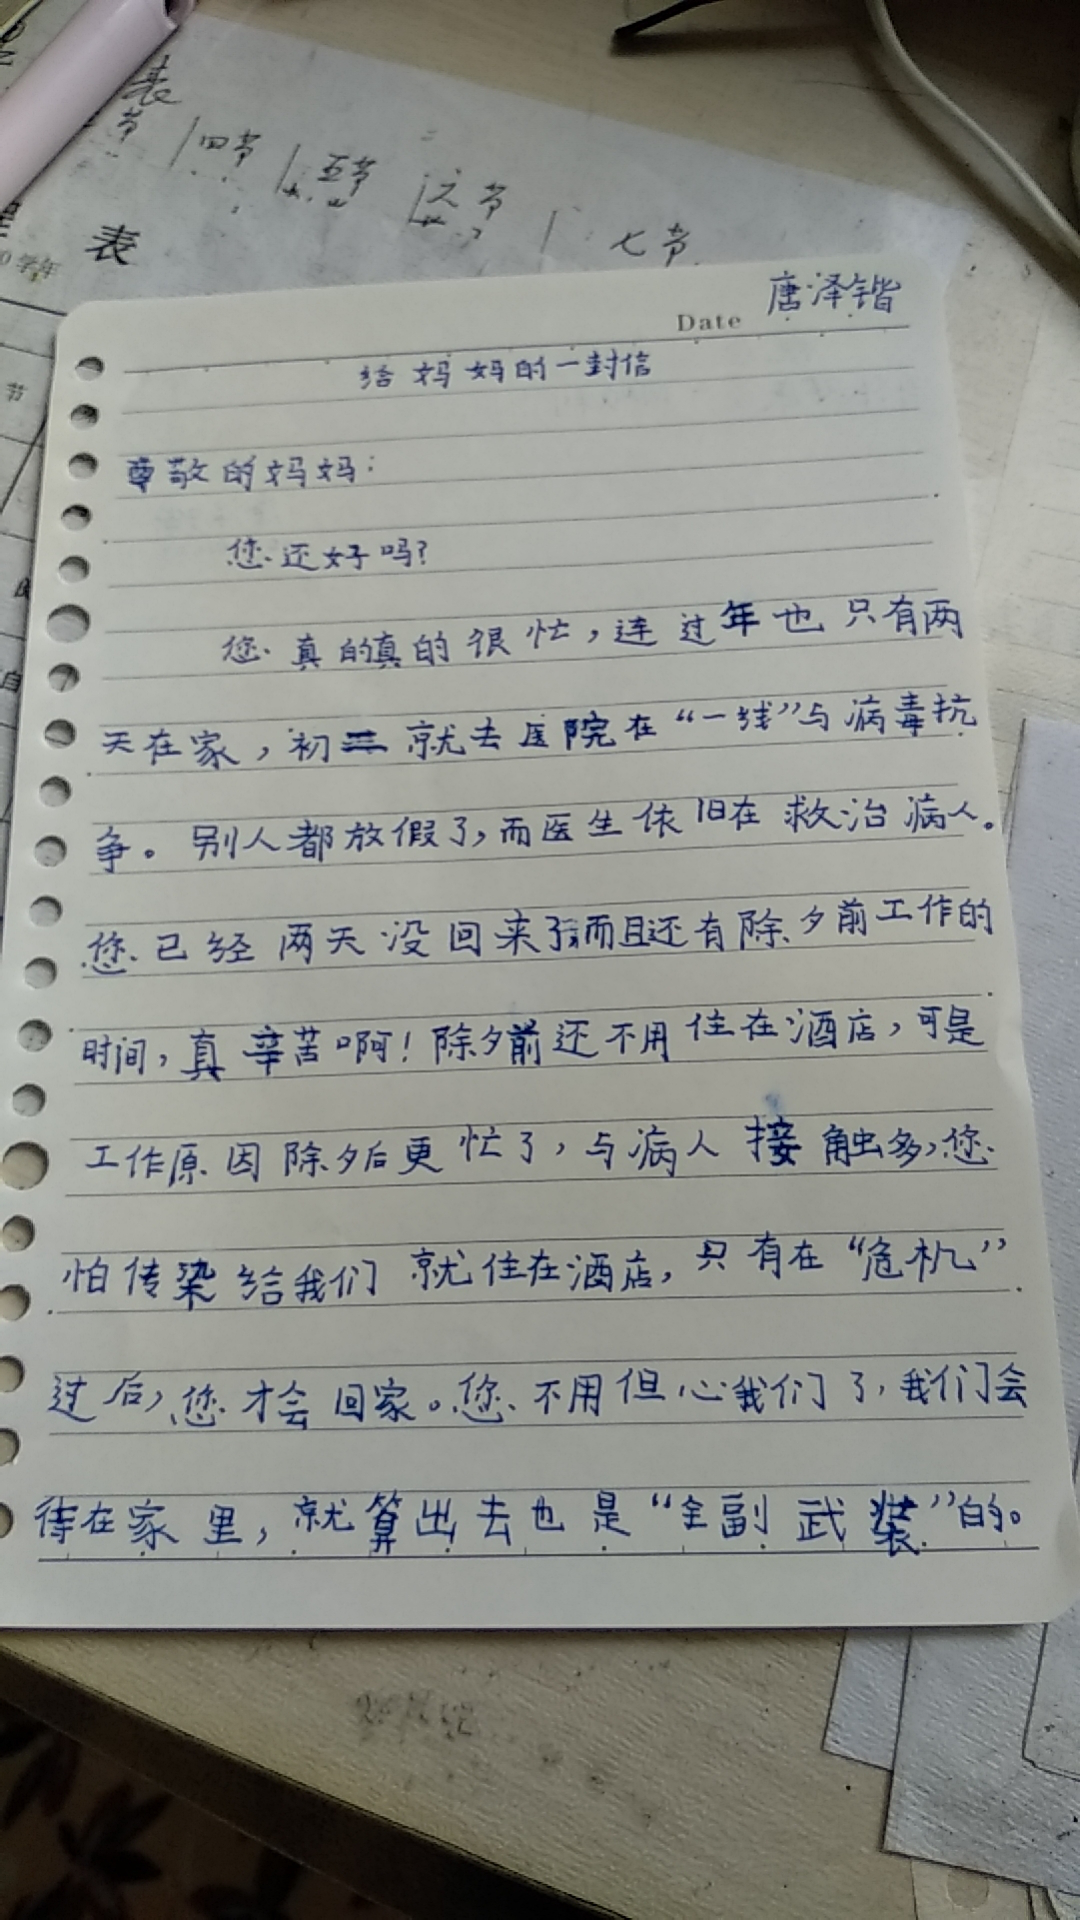 表
节 四节 五节 六节 七节
表
0学年
节
Date 唐泽锴
给妈妈的一封信
尊敬的妈妈:
您还好吗?
您真的真的很忙,连过年也只有两
天在家,初三就去医院在“一线”与病毒抗
争。别人都放假了,而医生依旧在救治病人。
您已经两天没回来了,而且还有除夕前工作的
时间,真辛苦啊!除夕前还不用住在酒店,可是
工作原因除夕后更忙了,与病人接触多,您
怕传染给我们就住在酒店,只有在“危机”
过后,您才会回家。您不用但心我们了,我们会
待在家里,就算出去也是“全副武装”的。